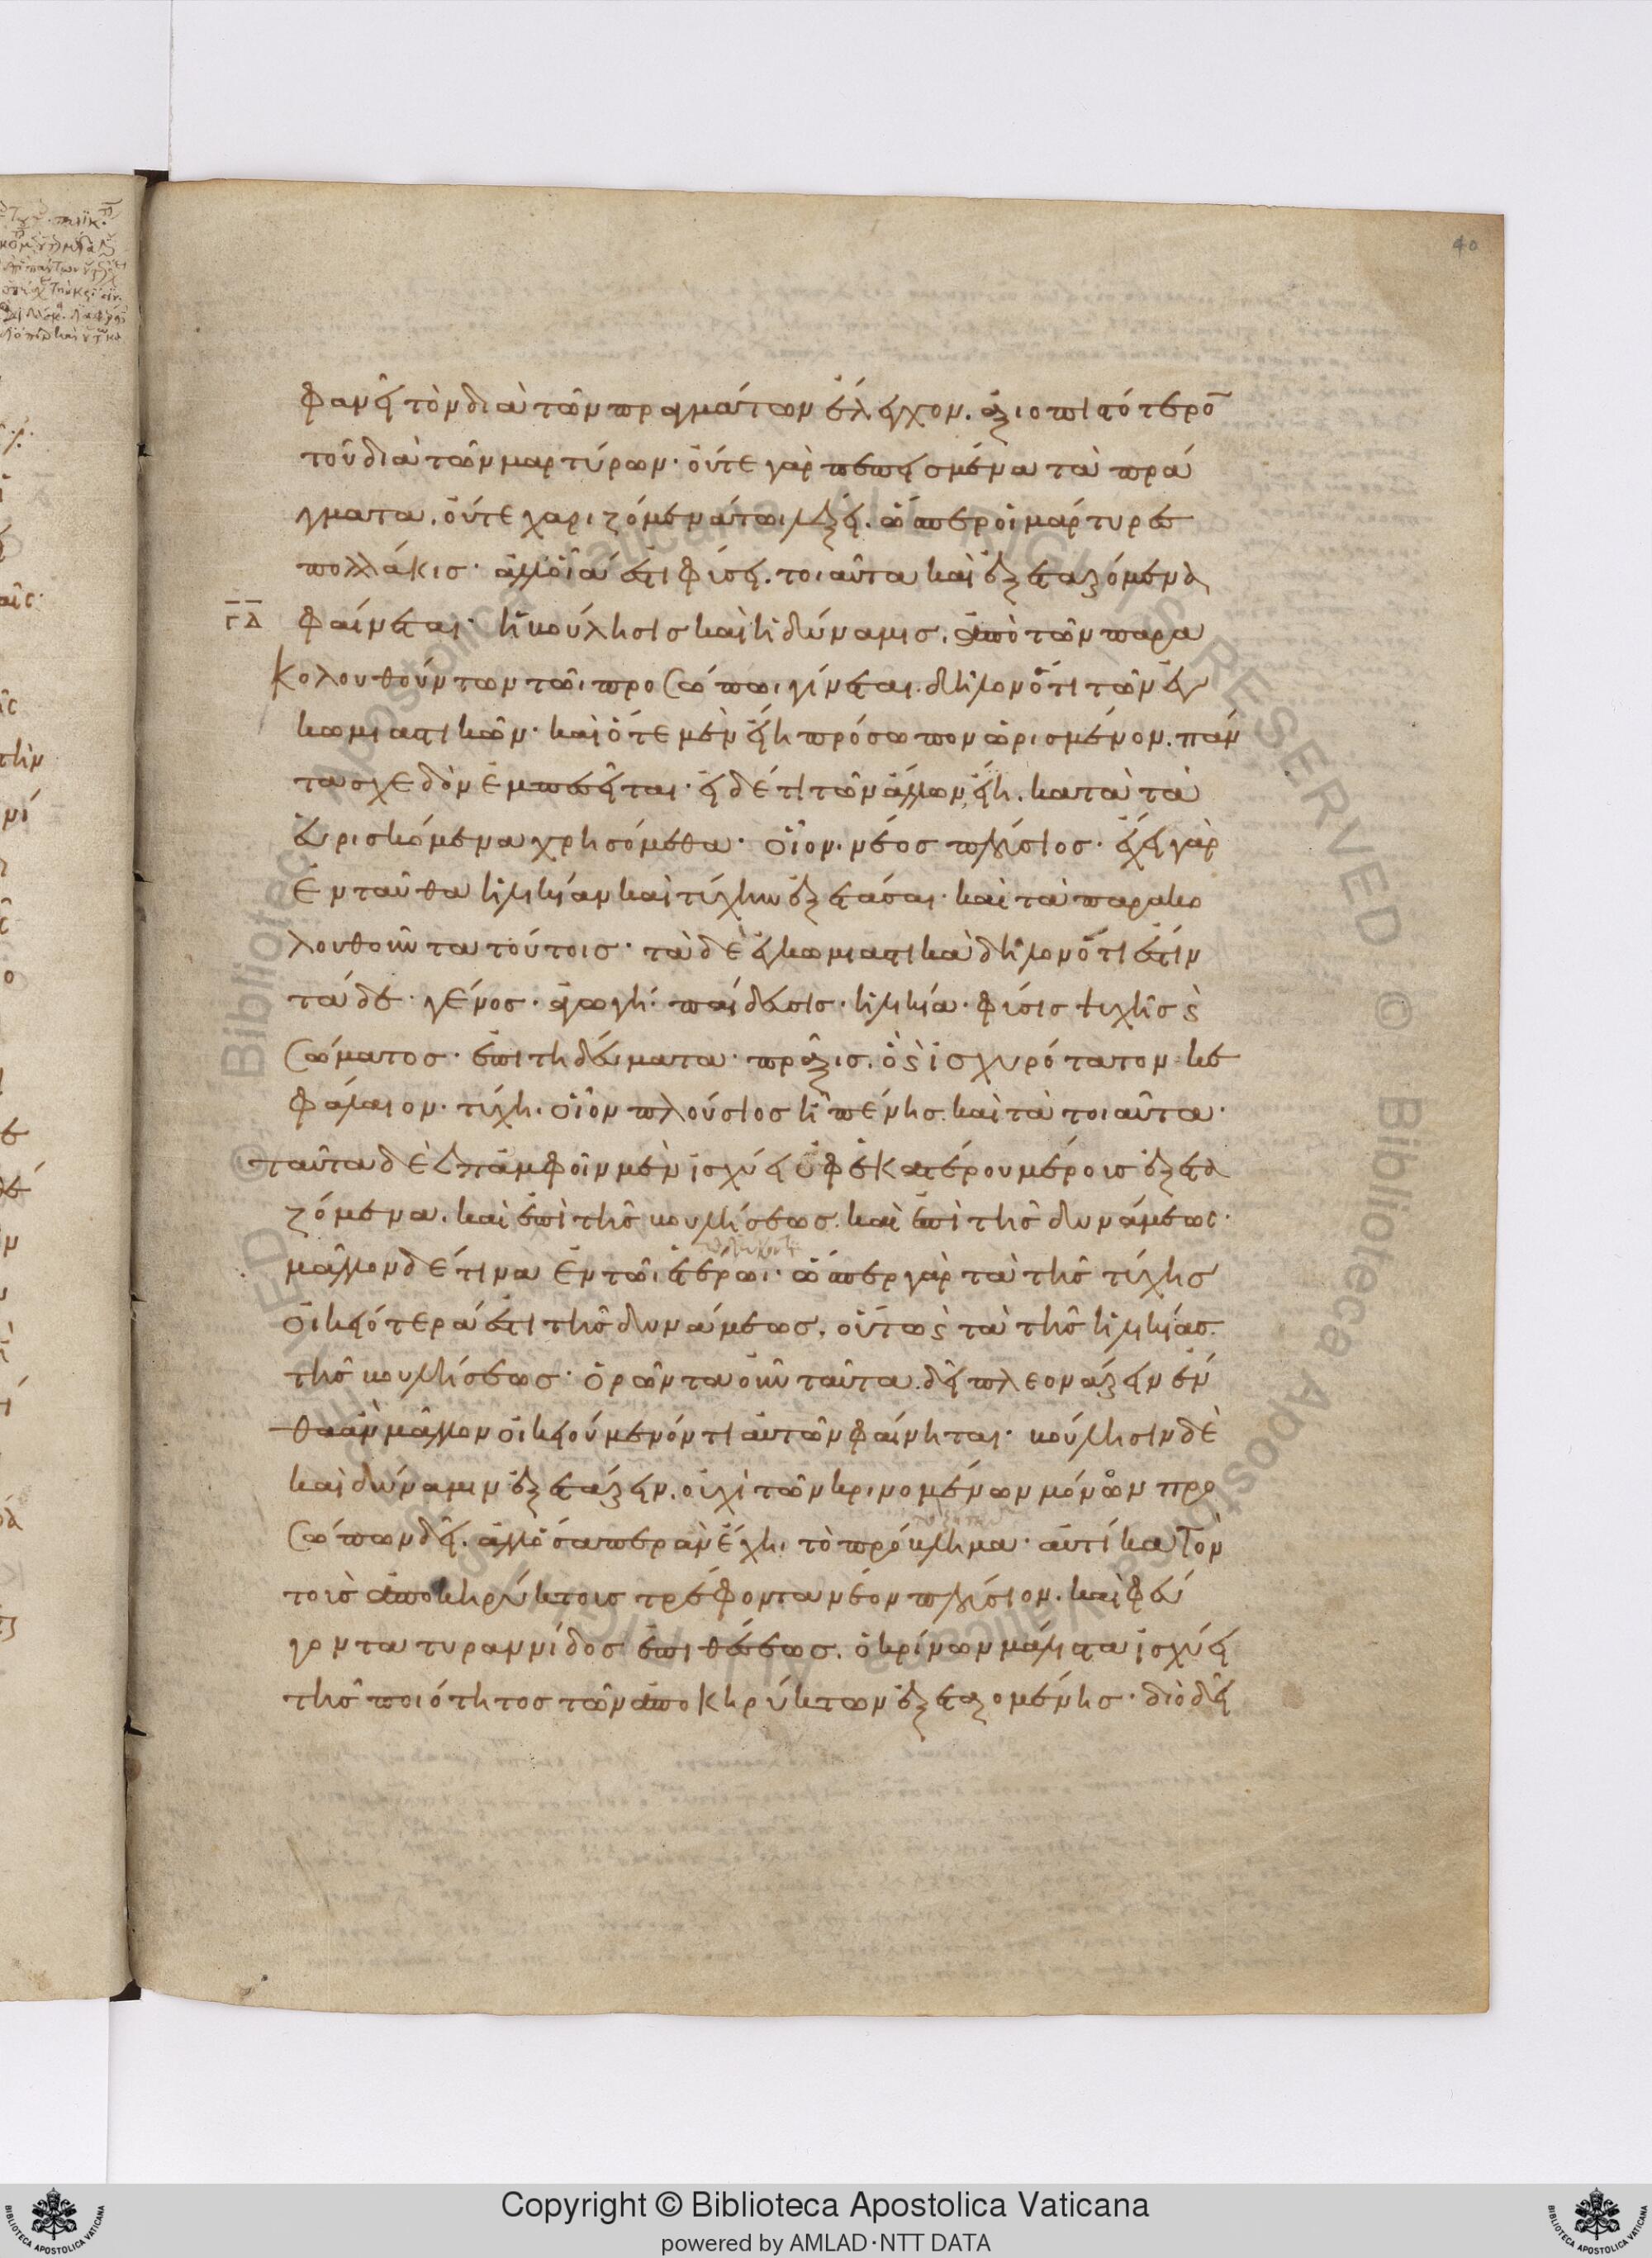 40
φανεῖ τὸν διὰ τῶν πραγμάτων ἔλεγχον. ἀξιοπιστότερο̅
τοῦ διὰ τῶν μαρτύρων· οὔτε γὰρ πεπεισμένα τὰ πρά
γματα. οὔτε χαριζόμενά τωι λέγει. ὥσπερ οἱ μάρτυρες
πολλάκις· ἀλλ' οἷά ἐστι φύσει. τοιαῦτα καὶ ἐξεταζόμενα
Γ̅Δ̅ φαίνεται· ἡ βούλησις καὶ ἡ δύναμις. ἀπὸ τῶν παρα
κολουθούντων τῶι προσώπωι γίνεται. δηλονότι τῶν ἐγ
κωμιαστικῶν· καὶ ὅτε μὲν εἴη πρόσωπον ὡρισμένον. πάν
τα σχεδὸν ἐμπεσεῖται· εἰ δέ τι τῶν ἄλλων εἴη. κατὰ τὰ
εὑρισκόμενα χρησόμεθα· οἷον. νέος πλούσιος· ἔχει γὰρ
ἐνταῦθα ἡλικίαν καὶ τύχην ἐξετάσαι· καὶ τὰ παρακο
λουθοῦντα τούτοις· τὰ δὲ ἐγκωμιαστικὰ δηλονότι ἐστὶν
τάδε· γένος· ἀγωγή· παίδευσις· ἡλικία· φύσις ψυχῆς ϛ̀
σώματος· ἐπιτηδεύματα· πράξεις. ὃ ϛ̀ ἰσχυρότατον κε
φάλαιον· τύχη. οἷον πλούσιος ἢ πένης. καὶ τὰ τοιαῦτα·
ταῦτα δὲ ἐπ' ἀμφοῖν μὲν ἰσχύει ὑφ' ἑκατέρου μέρους ἐξετα
ζόμενα. καὶ ἐπὶ τῆς βουλήσεως. καὶ ἐπὶ τῆς δυνάμεως·
μᾶλλον δέ τινα ἐν τῶι ἑτέρωι· ὥσπερ γὰρ τὰ τῆς τύχης
οἰκειότερά ἐστι τῆς δυνάμεως. οὕτως ϛ̀ τὰ τῆς ἡλικίας.
τῆς βουλήσεως· ὁρῶντα οὖν ταῦτα. δεῖ πλεονάζειν ἐν
θα ἂν μᾶλλον οἰκειούμενόν τι αὐτῶν φαίνηται· βούλησιν δὲ
καὶ δύναμιν ἐξετάζειν. οὐχὶ τῶν κρινομένων μόνων προ
σώπων δεῖ. ἀλλ' ὅσαπερ ἂν ἔχηι τὸ πρόβλημα· αὐτίκα τὸν
τοὺς ἀποκηρύκτους τρέφοντα νέον πλούσιον. καὶ φεύ
γοντα τυραννίδος ἐπιθέσεως. ὁ κρίνων μάλιστα ἰσχύει
τῆς ποιότητος τῶν ἀποκηρύκτων ἐξεταζομένης· διὸ δεῖ
Copyright © Biblioteca Apostolica Vaticana
powered by AMLAD·NTT DATA